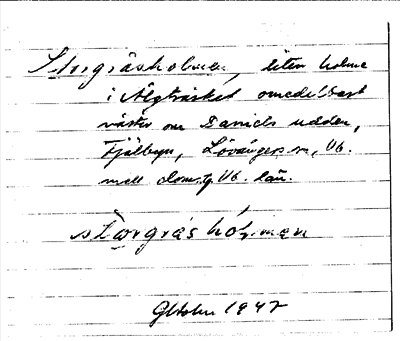 Storgräsholmen, liten holme
i Älgträsket omedelbart
väster om Daniels udden,
Fjälbyn, Lövångers sn, Vb.
mell. doms. Vb. län.
storgräshólman
1947